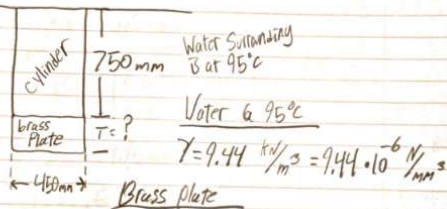 Cylinder
750mm
Water Surranding
B at 95°c
brass
Plate
T= ?
Water @ 95°c
γ=9.44 kN/m³ = 9.44 · 10⁻⁶ N/mm³
450mm
Brass plate